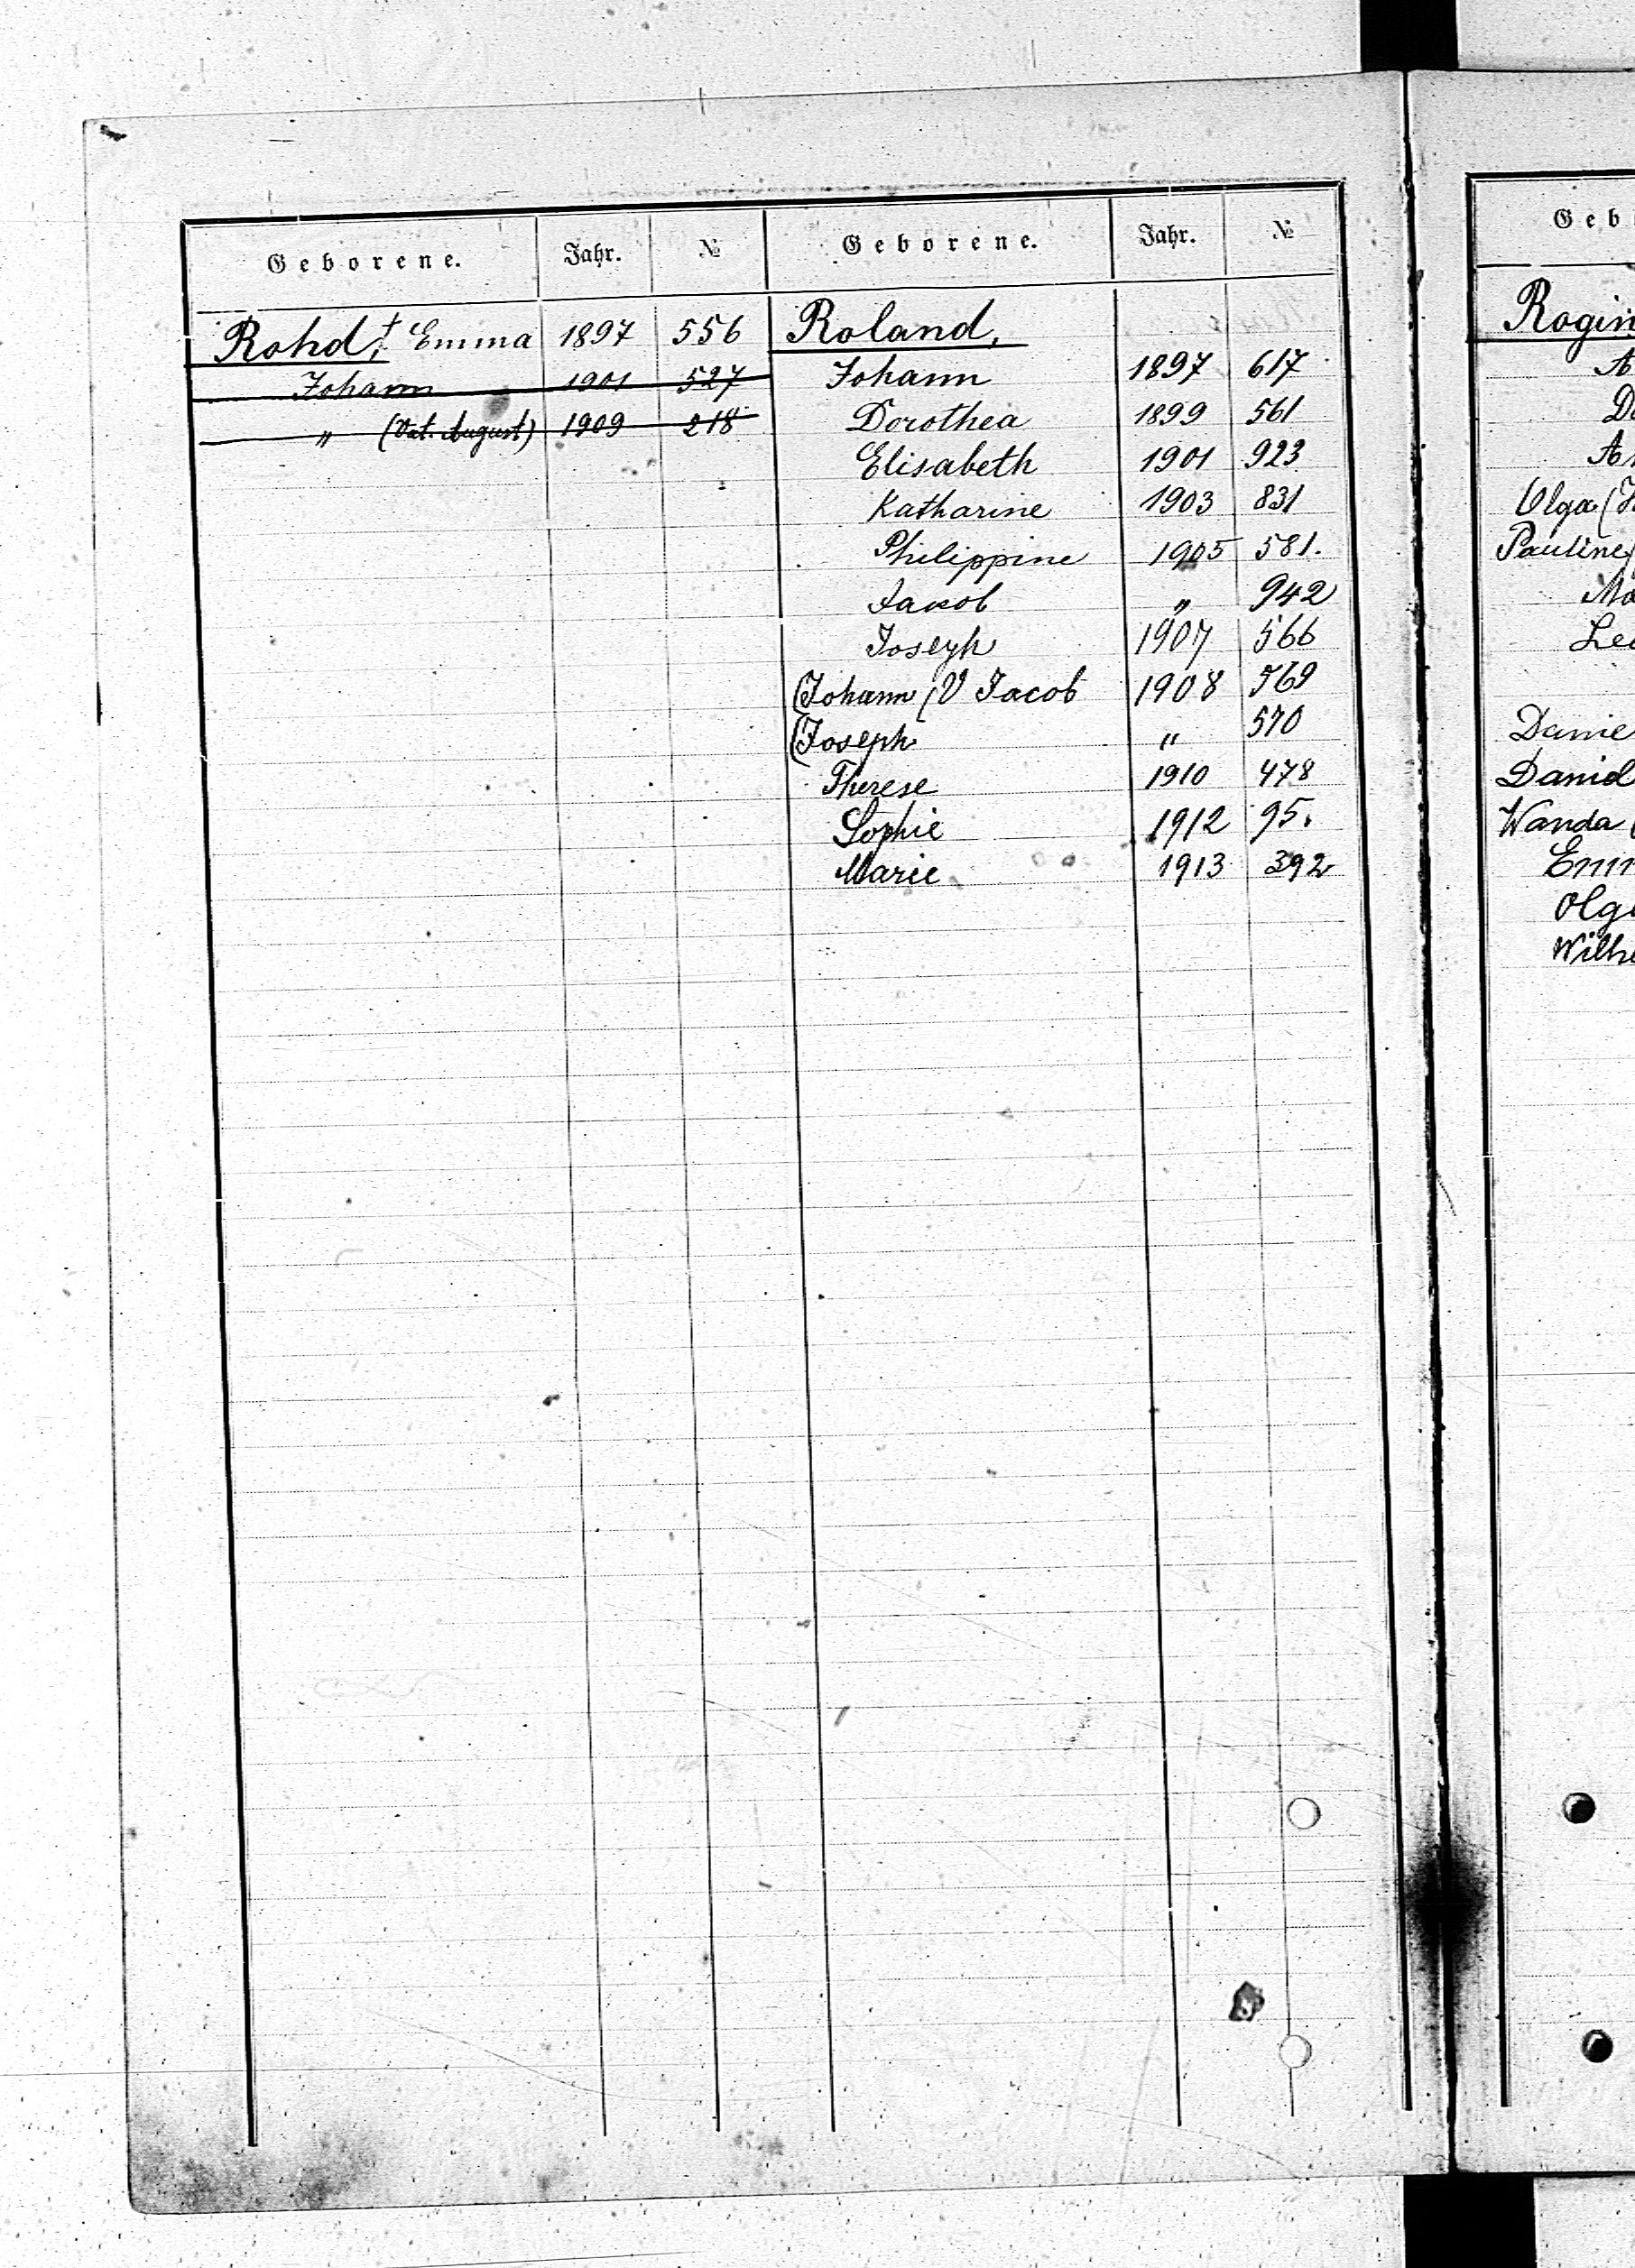 Geborene. Jahr. № Geborene. Jahr. №
Rohd, † Emma 1897 556
Johann 1901 527
" (Vat. August) 1909 218
Roland,
Johann 1897 617
Dorothea 1899 561
Elisabeth 1901 923
Katharine 1903 831
Philippine 1905 581.
Jakob " 942
Joseph 1907 566
(Johann (V Jacob 1908 569
(Joseph " 570
Therese 1910 478
Sophie 1912 95.
Marie 1913 392
Geb
Rogin
A
Do
An
Olga (
Pauline
Ma
Leo
Danie
Daniel
Wanda (
Emm
Olg
Wilhe